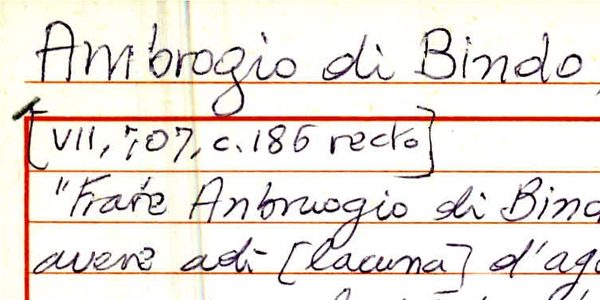 Ambrogio di Bindo,
[VII, 707, c. 186 recto]
"Frate Anbruogio di Bind
avere adì [lacuna] d'ago